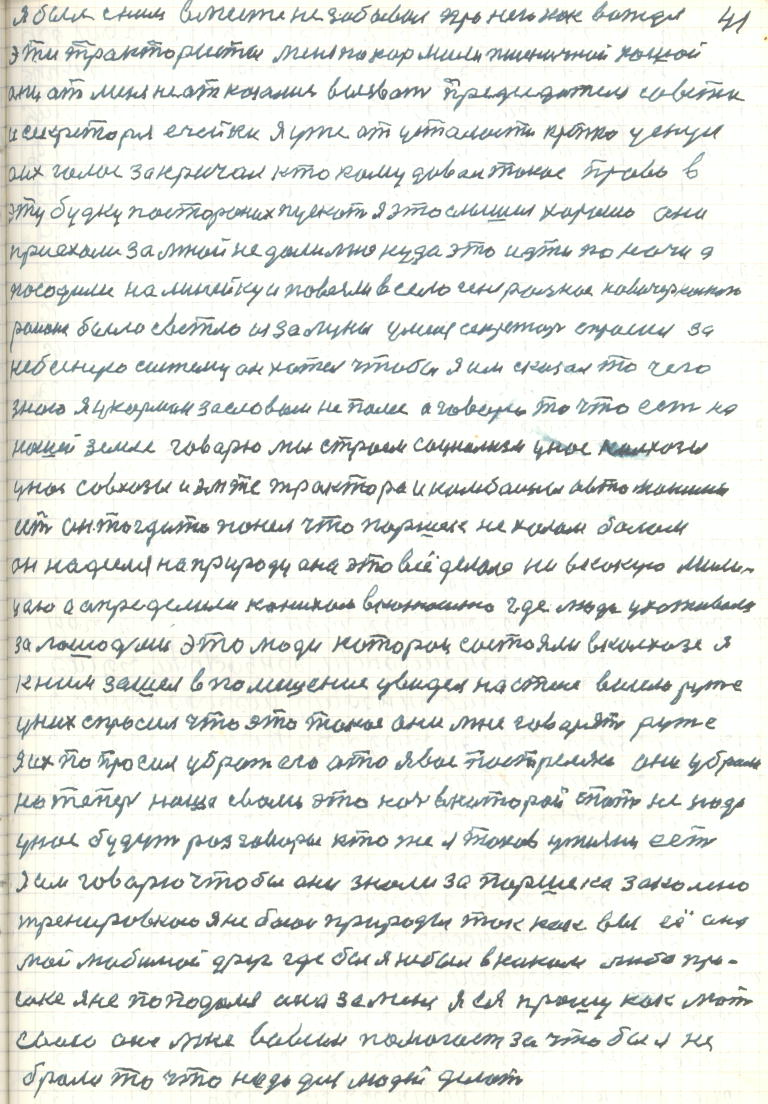 я был с ним вместе не забывал про него как вождя 41
эти трактористы меня покармили пшеничной кашой
они ат меня не атказались вызвать председателя советки
и секретаря ечейки я уже от усталости крепко уснул
их голос закричал кто кому давал такое право в
эту будку посторонних пускать я это слышал хорошо они
приехали за мной не далижно куда это идти по ночи а
посодили на линейку и повезли в село
районе было светло из за луны уменя секретарь спросил за
небесную систему он хател чтобы я им сказал то чего
знаю я укарман за словам не полез а говорю то что есть на
нашей земле говарю мы строем социализм унас колхозы
унас совхозы и эмтэ трактора и камбайны автомашины
ет он тогда то понел что паршек не халам балам
он надеялся на природу она это всё делала ни в какую мили-
цаю а определили канихам в конюшню где люди ухаживали
за лошадьми это люди которои состояли в колхозе я
кним зашел в помещение увидел на стене висело ружё
уних спросил что это такое они мне говарят ружё
я их попросил убрать его ато я вас постреляю они убрали
на тепер наша свами это ноч в каторой спать не надо
унас будут разговоры кто же я таков ужизни есть
я им говарю чтобы они знали за паршека закально
тренировкаю я не боюс природы так как вы её она
мой любимой друг где бы я небыл в каком либо про-
саке я не пападался она за меня я ея прошу как мать
сваю она мне вовсем помогает за что бы я не
брался то что надо для людей делать